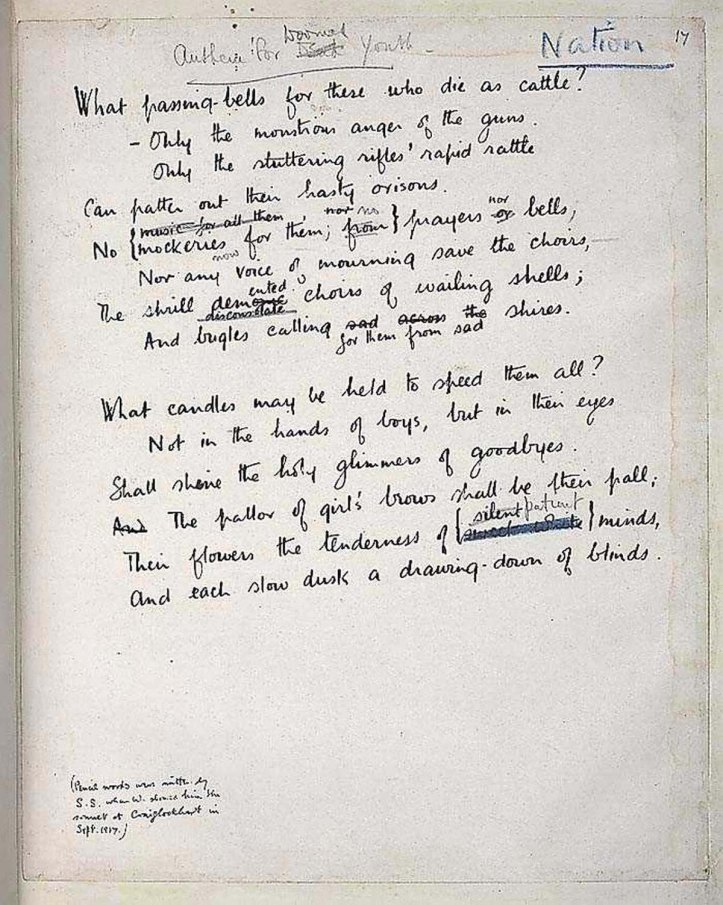 Doomed
Anthem for Dead Youth -
Nation
17
What passing-bells for these who die as cattle?
- Only the monstrous anger of the guns.
Only the stuttering rifles' rapid rattle
Can patter out their hasty orisons.
music for all them nor no nor
No {mockeries for them; from} prayers or bells,
now
Nor any voice of mourning save the choirs,-
ented
The shrill demonic choirs of wailing shells;
disconsolate
And bugles calling sad across the shires.
for them from sad
What candles may be held to speed them all?
Not in the hands of boys, but in their eyes
Shall shine the holy glimmers of goodbyes.
And The pallor of girls' brows shall be their pall;
silent patient
Their flowers the tenderness of { } minds,
And each slow dusk a drawing-down of blinds.
(Pencil words were written by
S.S. when W. showed him the
sonnet at Craiglockhart in
Sept. 1917.)